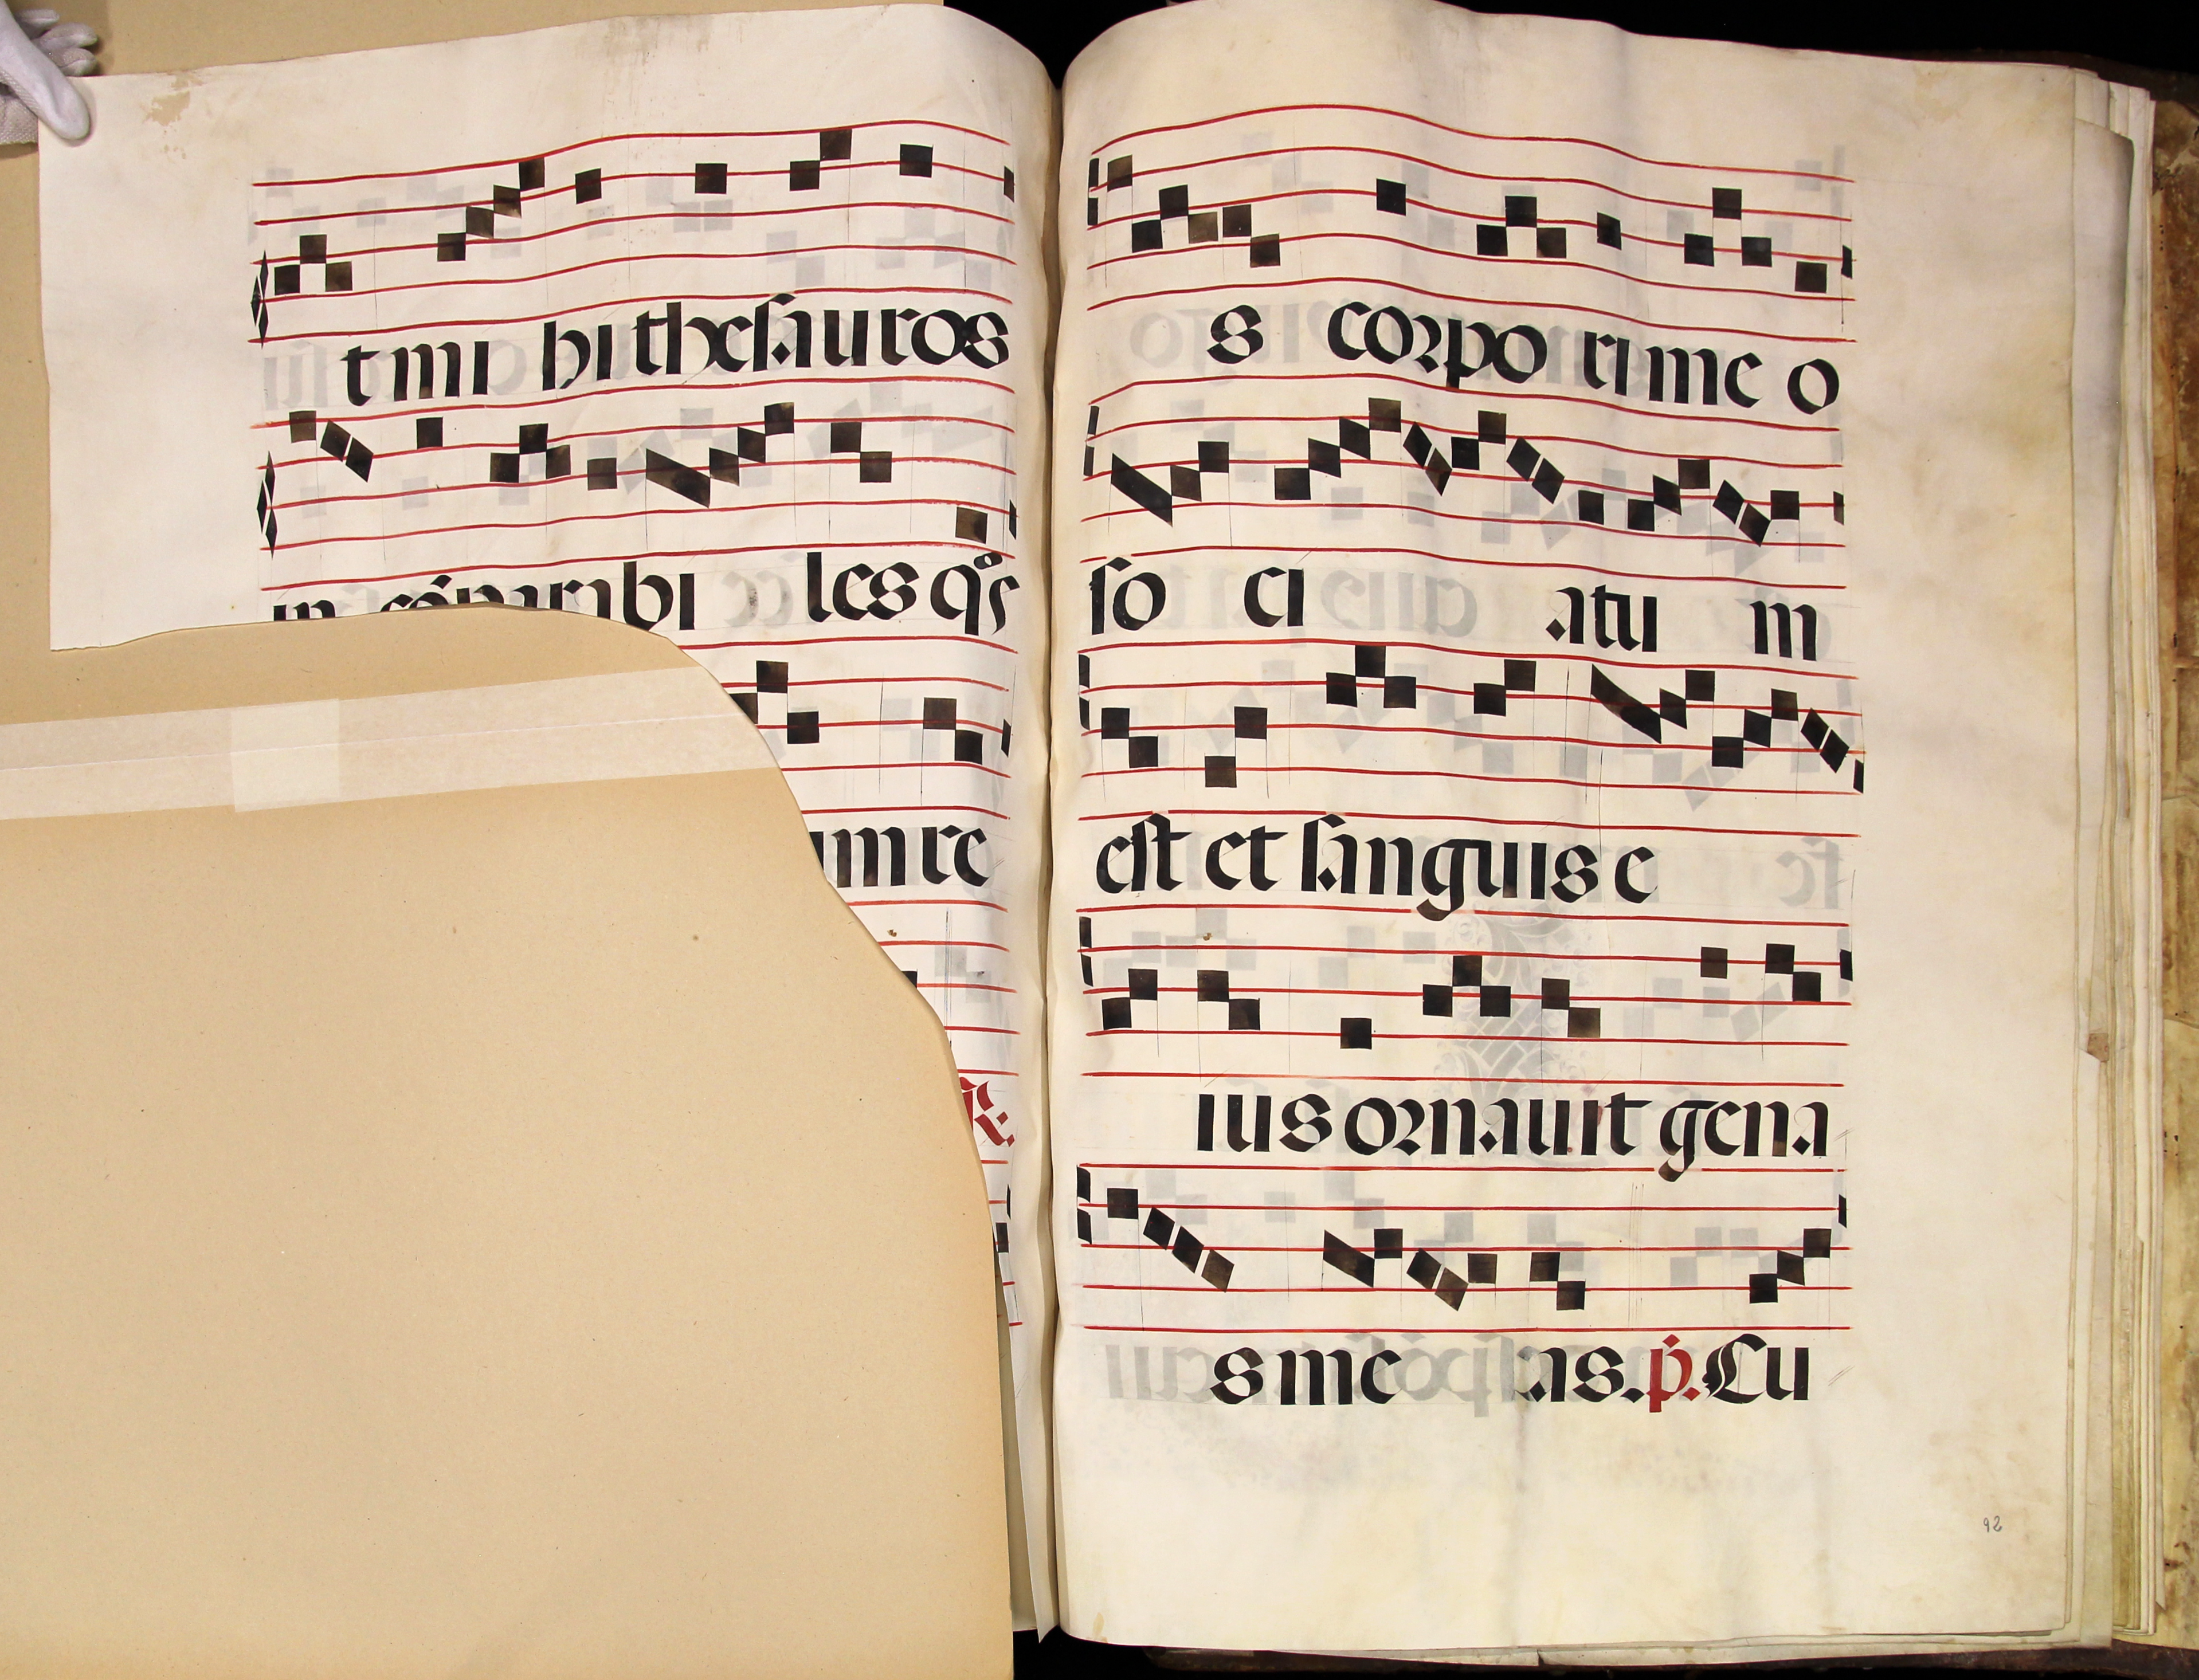 t mi hi thesauros
in cóparabi les q̊s
um re
℟.
s corpo ri me o
so ci atu m
est et sanguis e
ius ornauit gena
s me as. p̃. Cu
92